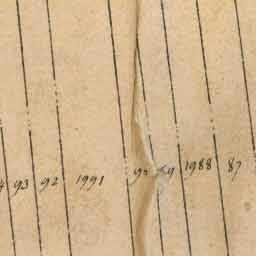 93 92 1991 90 1988 87